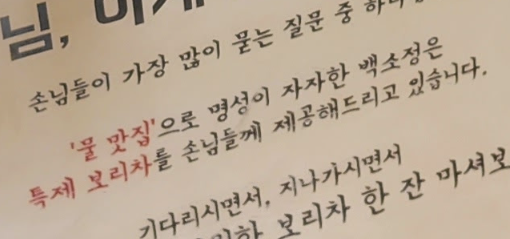 님, 이게
손님들이 가장 많이 묻는 질문 중
'물 맛집'으로 명성이 자자한 백소정은
특제 보리차를 손님들께 제공해드리고 있습니다.
기다리시면서, 지나가시면서
보리차 한 잔 마셔보